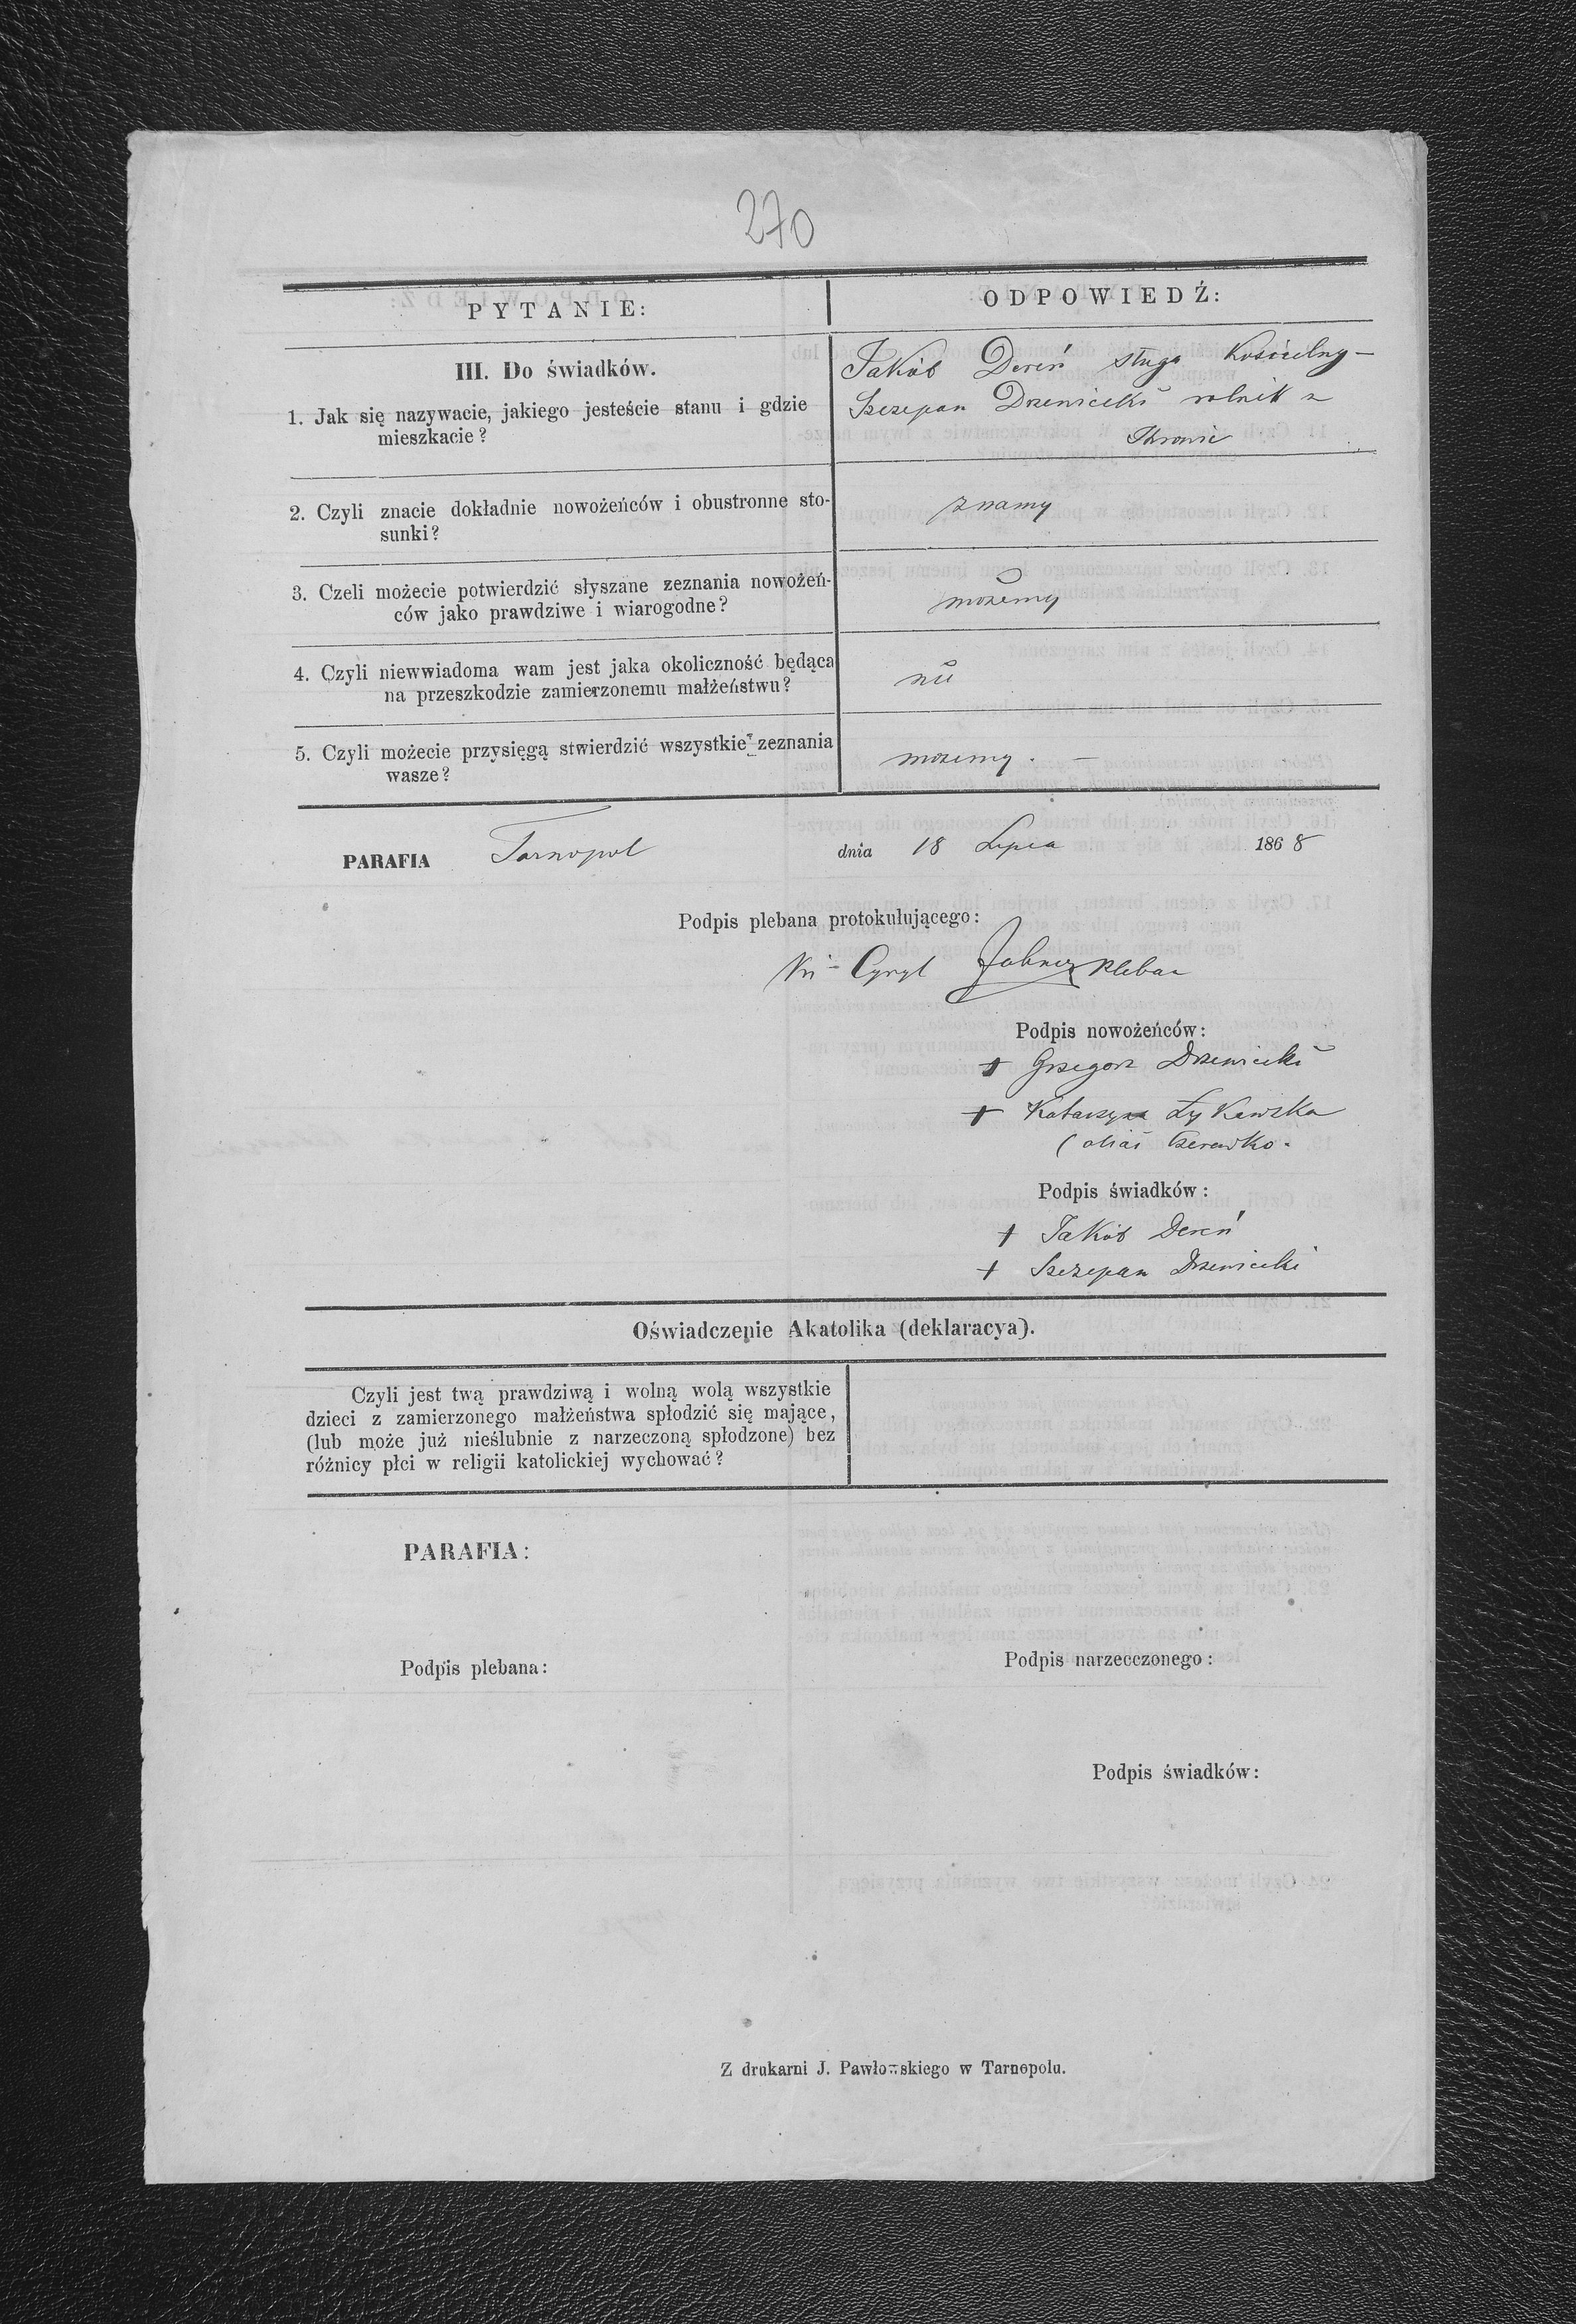 270
PYTANIE:
ODPOWIEDŹ:
III. Do świadków.
1. Jak się nazywacie, jakiego jesteście stanu i gdzie
mieszkacie?
Jakób Dereń sługa Kościelny –
Szczepan Drzewiecki rolnik z
2. Czyli znacie dokładnie nowożeńców i obustronne sto-
sunki?
znamy
3. Czeli możecie potwierdzić słyszane zeznania nowożeń-
ców jako prawdziwe i wiarogodne?
możemy
4. Czyli niewwiadoma wam jest jaka okoliczność będąca
na przeszkodzie zamierzonemu małżeństwu?
nie
5. Czyli możecie przysięgą stwierdzić wszystkie zeznania
wasze?
możemy. –
PARAFIA Tarnopol dnia 18 Lipca 1868
Podpis plebana protokułującego:
Cyryl pleban
Podpis nowożeńców:
+ Grzegorz Drzewiecki
+ Katarzyna Łykawska
(alias
Podpis świadków:
+ Jakób Dereń
+ Szczepan Drzewiecki
Oświadczenie Akatolika (deklaracya).
Czyli jest twą prawdziwą i wolną wolą wszystkie
dzieci z zamierzonego małżeństwa spłodzić się mające,
(lub może już nieślubnie z narzeczoną spłodzone) bez
różnicy płci w religii katolickiej wychować?
PARAFIA:
Podpis plebana:
Podpis narzecczonego:
Podpis świadków:
Z drukarni J. Pawłowskiego w Tarnopolu.